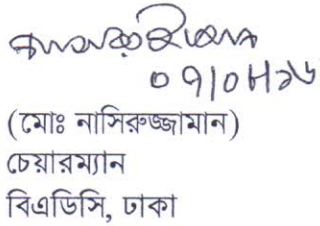 ০৭/০৮/১৬
(মোঃ নাসিরুজ্জামান)
চেয়ারম্যান
বিএডিসি, ঢাকা